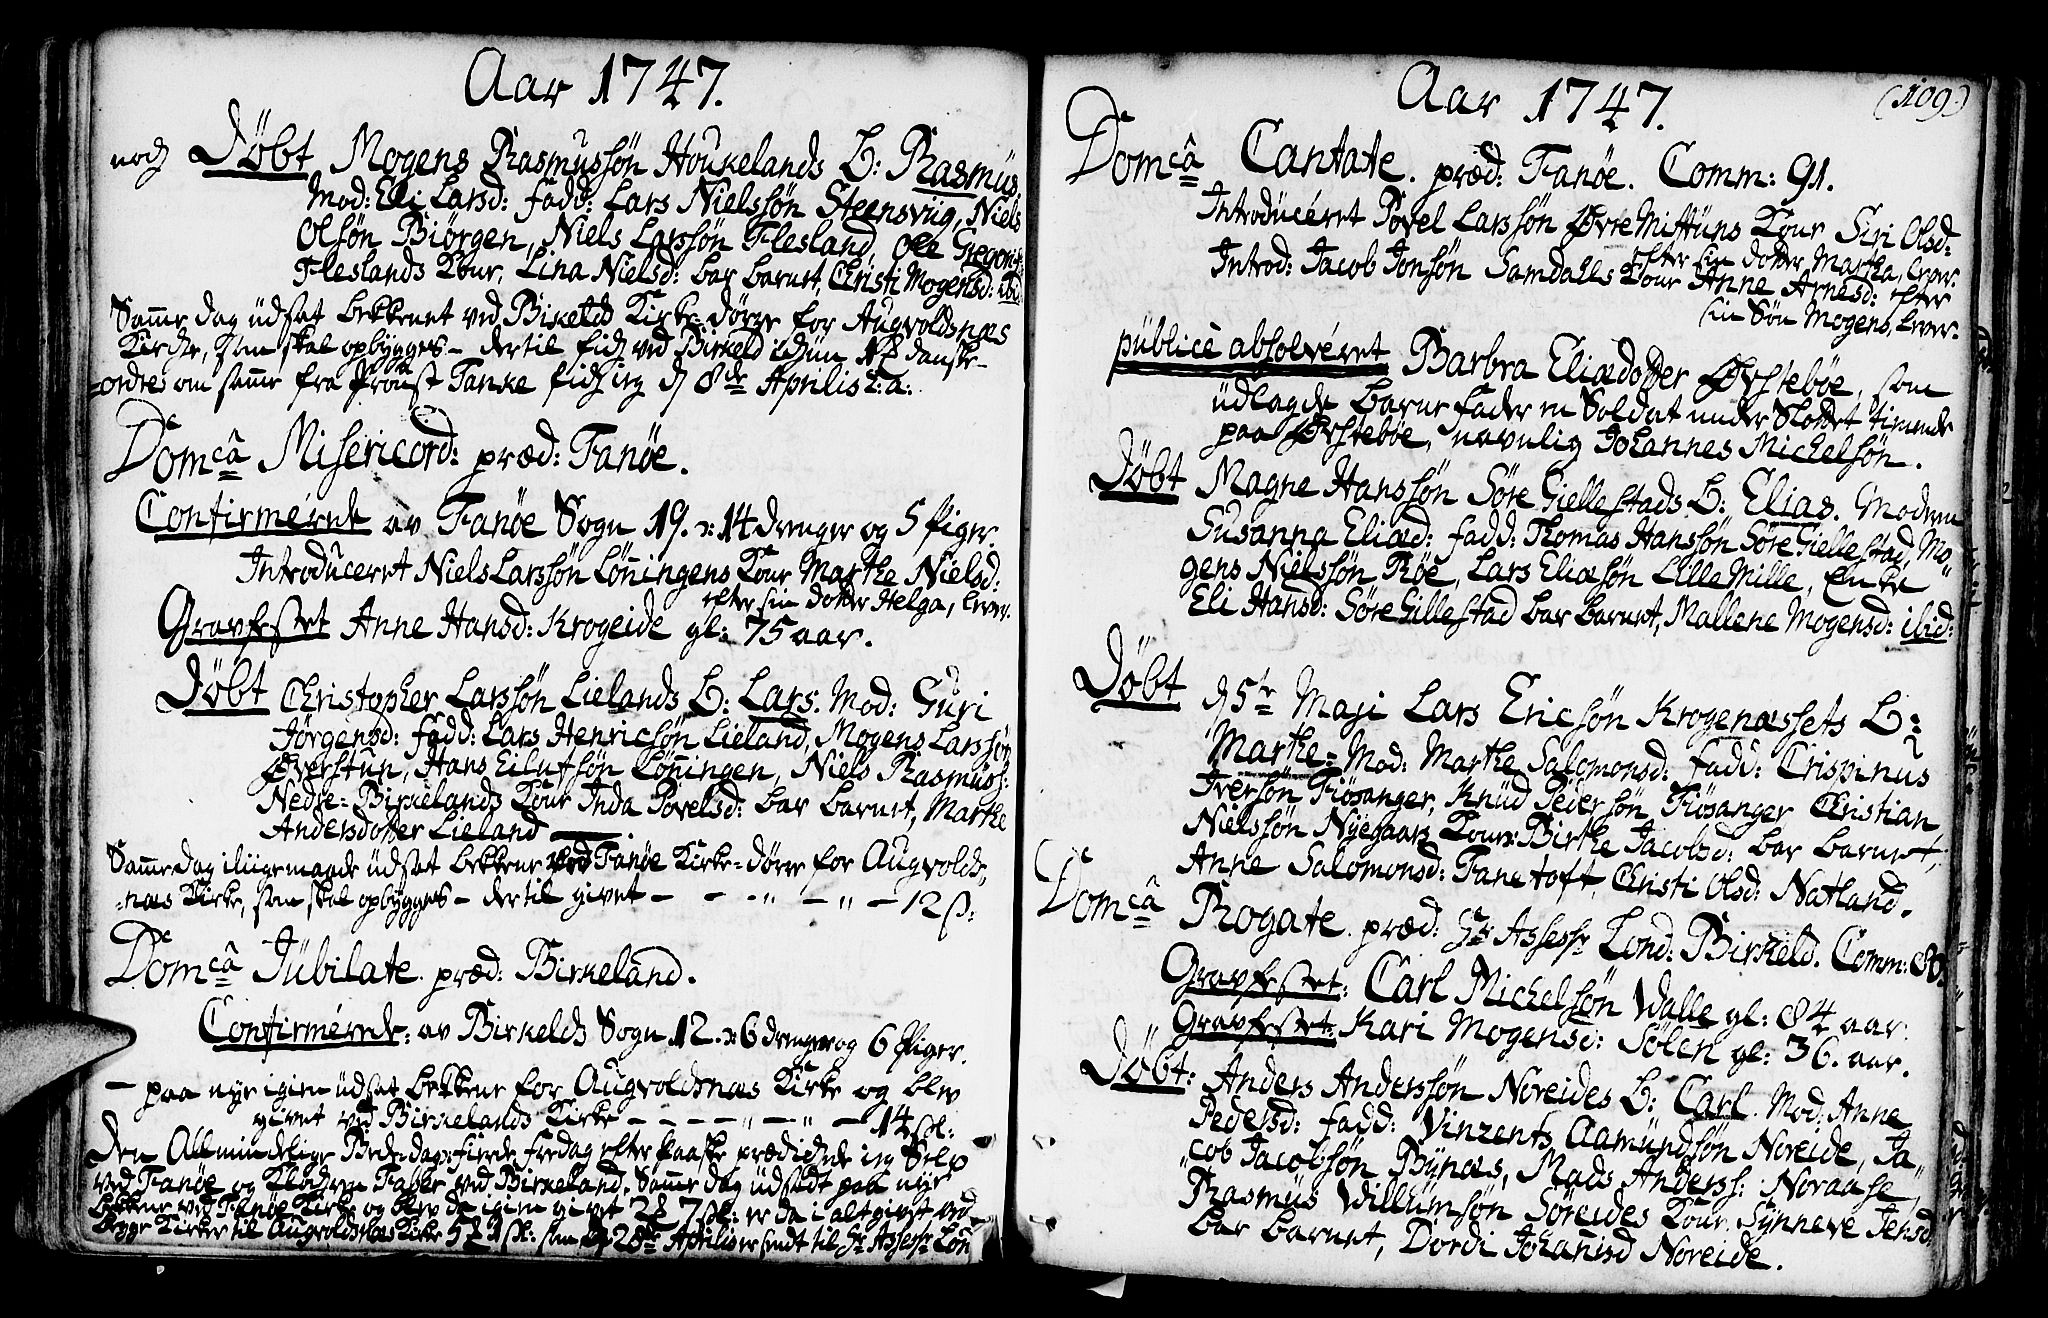 Aar 1747.
noch Døbt Mogens Rasmussøn Houkelands B: Rasmus.
Mod: Eli Larsd: fadd: Lars Nielssøn Steensviig, Niels
Olsøn Biørgen, Niels Larssøn Flesland, Ole Gregoris:
Fleslands Kour, Lina Nielsd: bar barnet, Christi Mogensd: ibid:
Samme dag udsat bekkenet ved Birkeld Kirke-dørre for Augvoldsnæs
Kirche, som skal opbygges - dertil fich ved Birkeld
ordre om samme fra Provst Tanke fich jeg d 8de Aprilis h: a:
Domcâ Misericord: præd: Fanøe.
Confirmérede av Fanøe Sogn 19. ɔ: 14 drenger og 5 Piger.
Introduceret Niels Larssøn Løningens Kour Marthe Nielsd:
efter sin dotter Helga, lever.
Gravfestet Anne Hansd: Krogeide gl: 75 aar.
Døbt Christopher Larssøn Lielands B: Lars. Mod: Guri
Jørgensd: fadd: Lars Henricsøn Lieland, Mogens Larssøn
Øverstun, Hans Eilufsøn Løningen, Niels Rasmuss:
Nedre-Birkelands Kour Inda Povelsd: bar barnet, Marthe
Andersdotter Lieland
Samme dag iligemaade udsat bekkene ved Fanøe Kirke-dørre for Augvolds,
næs Kirke, som skal opbygges - dertil givet - - - " - " - 12 ß:
Domcâ Jubilate. præd: Birkeland.
Confirmérede: av Birkelds Sogn 12. ɔ: 6 drenger og 6 Piger.
- paa nye igien udsat bekkene for Augvoldsnæs Kirke og blev
givet ved Birkelands Kirke - - - - - " - " - 14 sk:
Den Allmindelige Bededag: fierde fredag efter Paaske prædichede jeg Selv
ved Fanøe og Klocheren Faber ved Birkeland. Samme dag udsadt paa nye
bekkene ved Fanøe Kirke og blev da igien givet 7 sk: er da i alt givet ved
begge Kirker til Augvoldsnæs Kirke som d 28de Aprilis er sendt til Hr Assessr Lon
Aar 1747.
(109)
Domcâ Cantate. præd: Fanøe. Comm: 91.
Introducéret Povel Larssøn Øvre Mittuns Kour Siri Olsd:
efter sin dotter Martha, lever.
Introd: Jacob Jonsøn Samdahls Kour Anne Arnesd: efter
sin Søn Mogens, lever.
publicè absolvéret Barbra Eliædotter Øvstebøe, som
udlagde barne fader en Soldat under Slottet tienende
paa Øvstebøe, navnlig Johannes Michelsøn.
Døbt Magne Hanssøn Søre Giellestads B: Elias. Moderen
Susanna Eliæd: fadd: Thomas Hanssøn Søre Giellestad, Mo"
gens Nielssøn Røe, Lars Eliæsøn Lille Mille, Enke
Eli Hansd: Søre Gillestad bar barnet, Mallene Mogensd: ibid:
Døbt d 5te Maji Lars Ericsøn Krogenæssets B:
Marthe: Mod: Marthe Salomonsd: fadd: Crispinus
Iversøn Fiøsanger, Knud Pedersøn Fiøsanger Christian
Nielssøn Nyegaars Kour: Birthe Jacobsd: bar barnet,
Anne Salomonsd: Fanetoft, Christi Olsd: Natland.
Domcâ Rogate. præd: Hr Assessr Lond: Birkeld. Comm: 80.
Gravfestet: Carl Michelsøn Walle gl: 84 aar.
Gravfestet: Kari Mogensd: Sølen gl: 36. aar.
Døbt: Anders Anderssøn Noreides B: Carl. Mod: Anne
Pedersd: fadd: Vinzents Aamundsøn Noreide, Ja"
"cob Jacobsøn Bynæs, Mads Anderss: Noraase,
Rasmus Willumsøn Søreides Kour Synneve Jensd:
bar barnet, Dordi Johannisd Noreide.